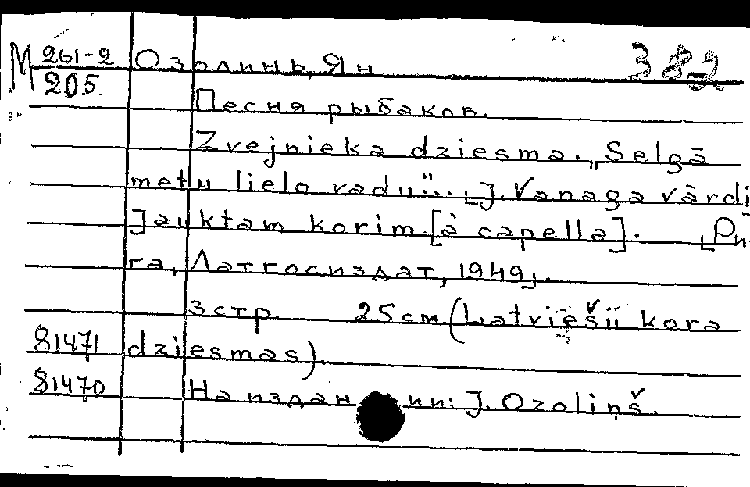 М 261-2 Озолинь, Ян 382
205.
Песня рыбаков.
Zvejnieka dziesma. „Selgā
metu lielo vadu"... [J. Vanaga vārdi]
Jauktam korim. [à capella]. [Ри-
га, Латгосиздат, 1949].
3 стр. 25 см (Latviešu kora
81471 dziesmas).
81470 На издании: J. Ozoliņš.